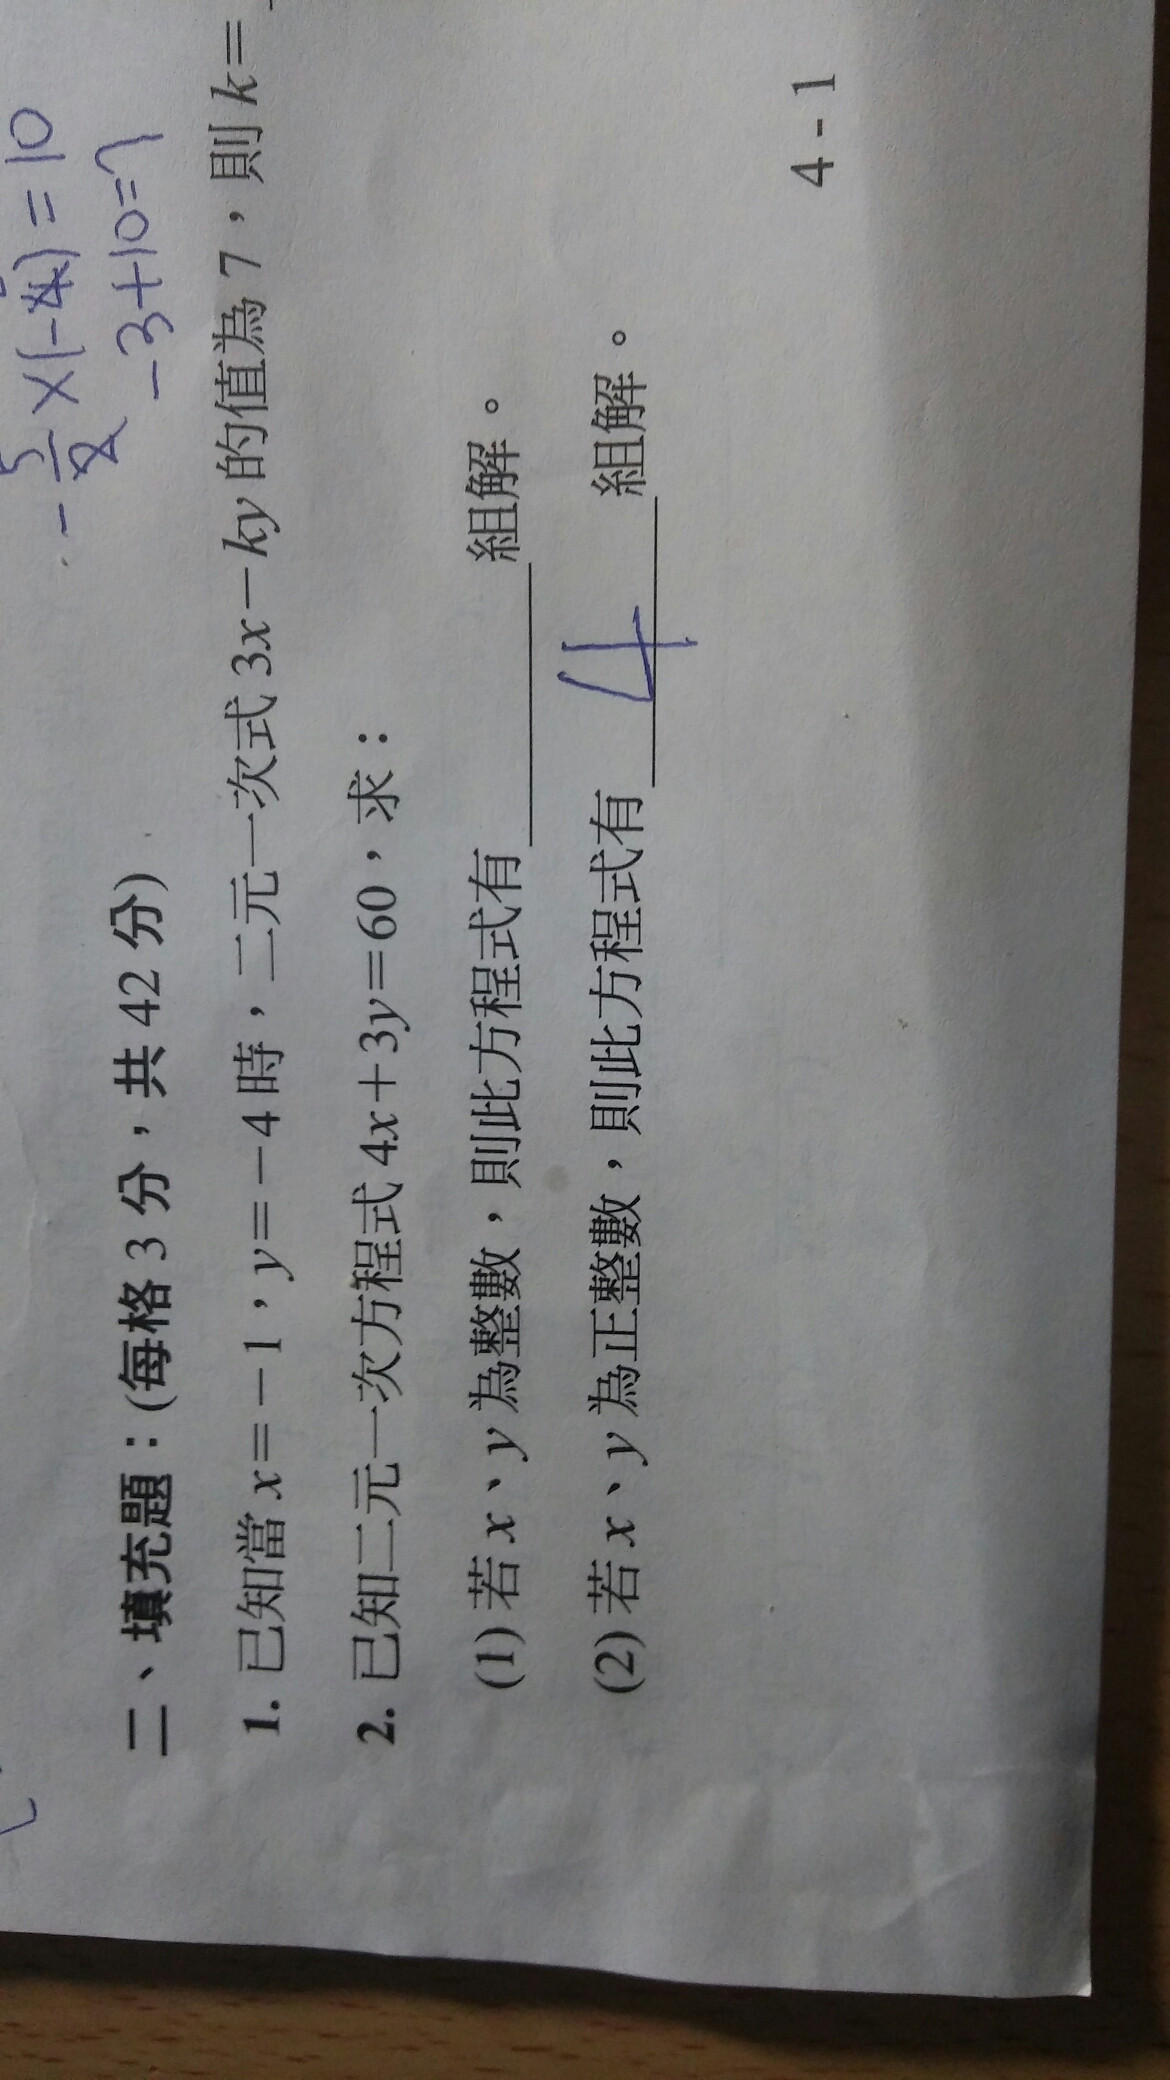 -5/2×(-4)=10
-3+10=7
二、填充題：(每格 3 分，共 42 分)
1. 已知當 x=-1，y=-4 時，二元一次式 3x-ky 的值為 7，則 k=
2. 已知二元一次方程式 4x+3y=60，求：
(1) 若 x、y 為整數，則此方程式有______組解。
(2) 若 x、y 為正整數，則此方程式有 4 組解。
4-1